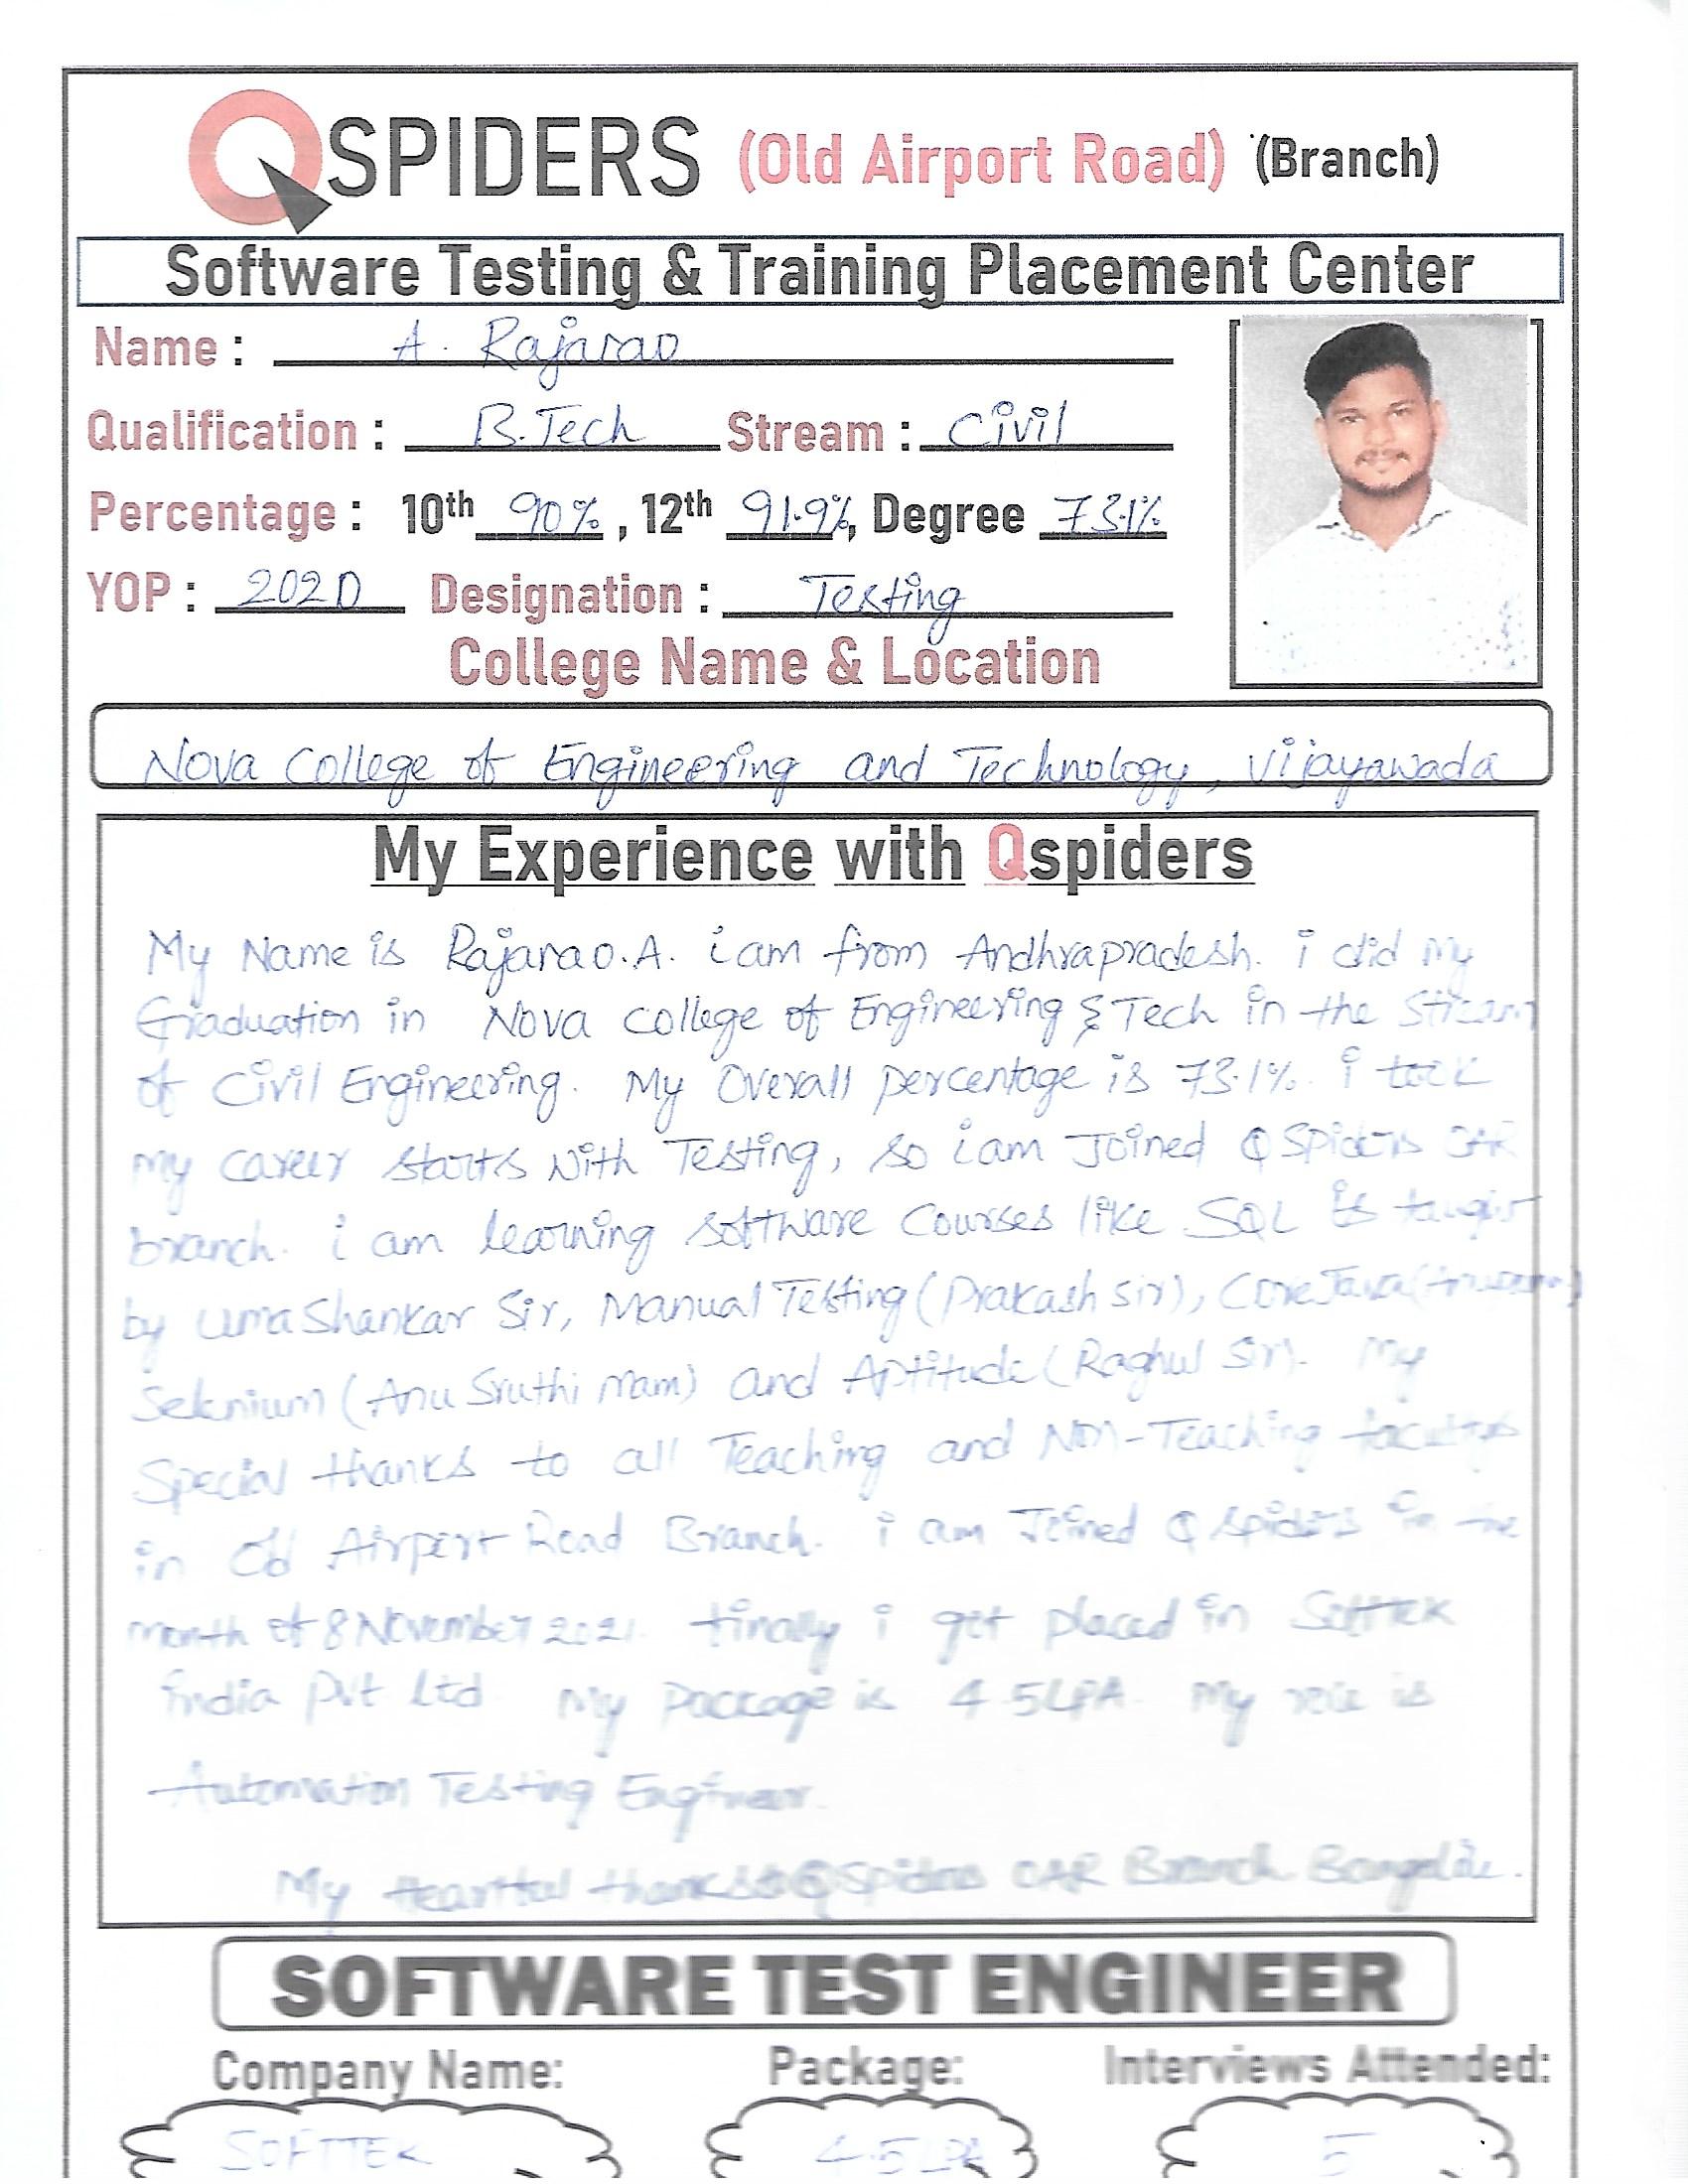 QSPIDERS (Old Airport Road) (Branch)
Software Testing & Training Placement Center
Name : A. Rajarao
Qualification : B.Tech Stream : Civil
Percentage : 10th 90%, 12th 91.9%, Degree 73.1%
YOP : 2020 Designation : Testing
College Name & Location
Nova College of Engineering and Technology, Vijayawada
My Experience with Qspiders
My Name is Rajarao.A. i am from Andhrapradesh. i did My
Graduation in Nova college of Engineering & Tech in the Stream
of Civil Engineering. My Overall percentage is 73.1%. i took
my career starts with Testing, so i am Joined QSpiders OAR
branch. i am learning software Courses like SQL is taught
by Uma Shankar Sir, Manual Testing (Prakash sir), Core Java
Selenium (Anu Sruthi Mam) and Aptitude (Raghul Sir). My
Special thanks to all Teaching and Non-Teaching
in Old Airport Road Branch. i am Joined Q spiders in the
month of 8 November 2021. finally i got placed in Softtek
india Pvt Ltd My Package is 4.5LPA. My role is
Automation Testing Engineer.
My Heartful thanks to QSpiders OAR Branch Bangalore.
SOFTWARE TEST ENGINEER
Company Name: Package: Interviews Attended:
SOFTTEK 4.5LPA 5